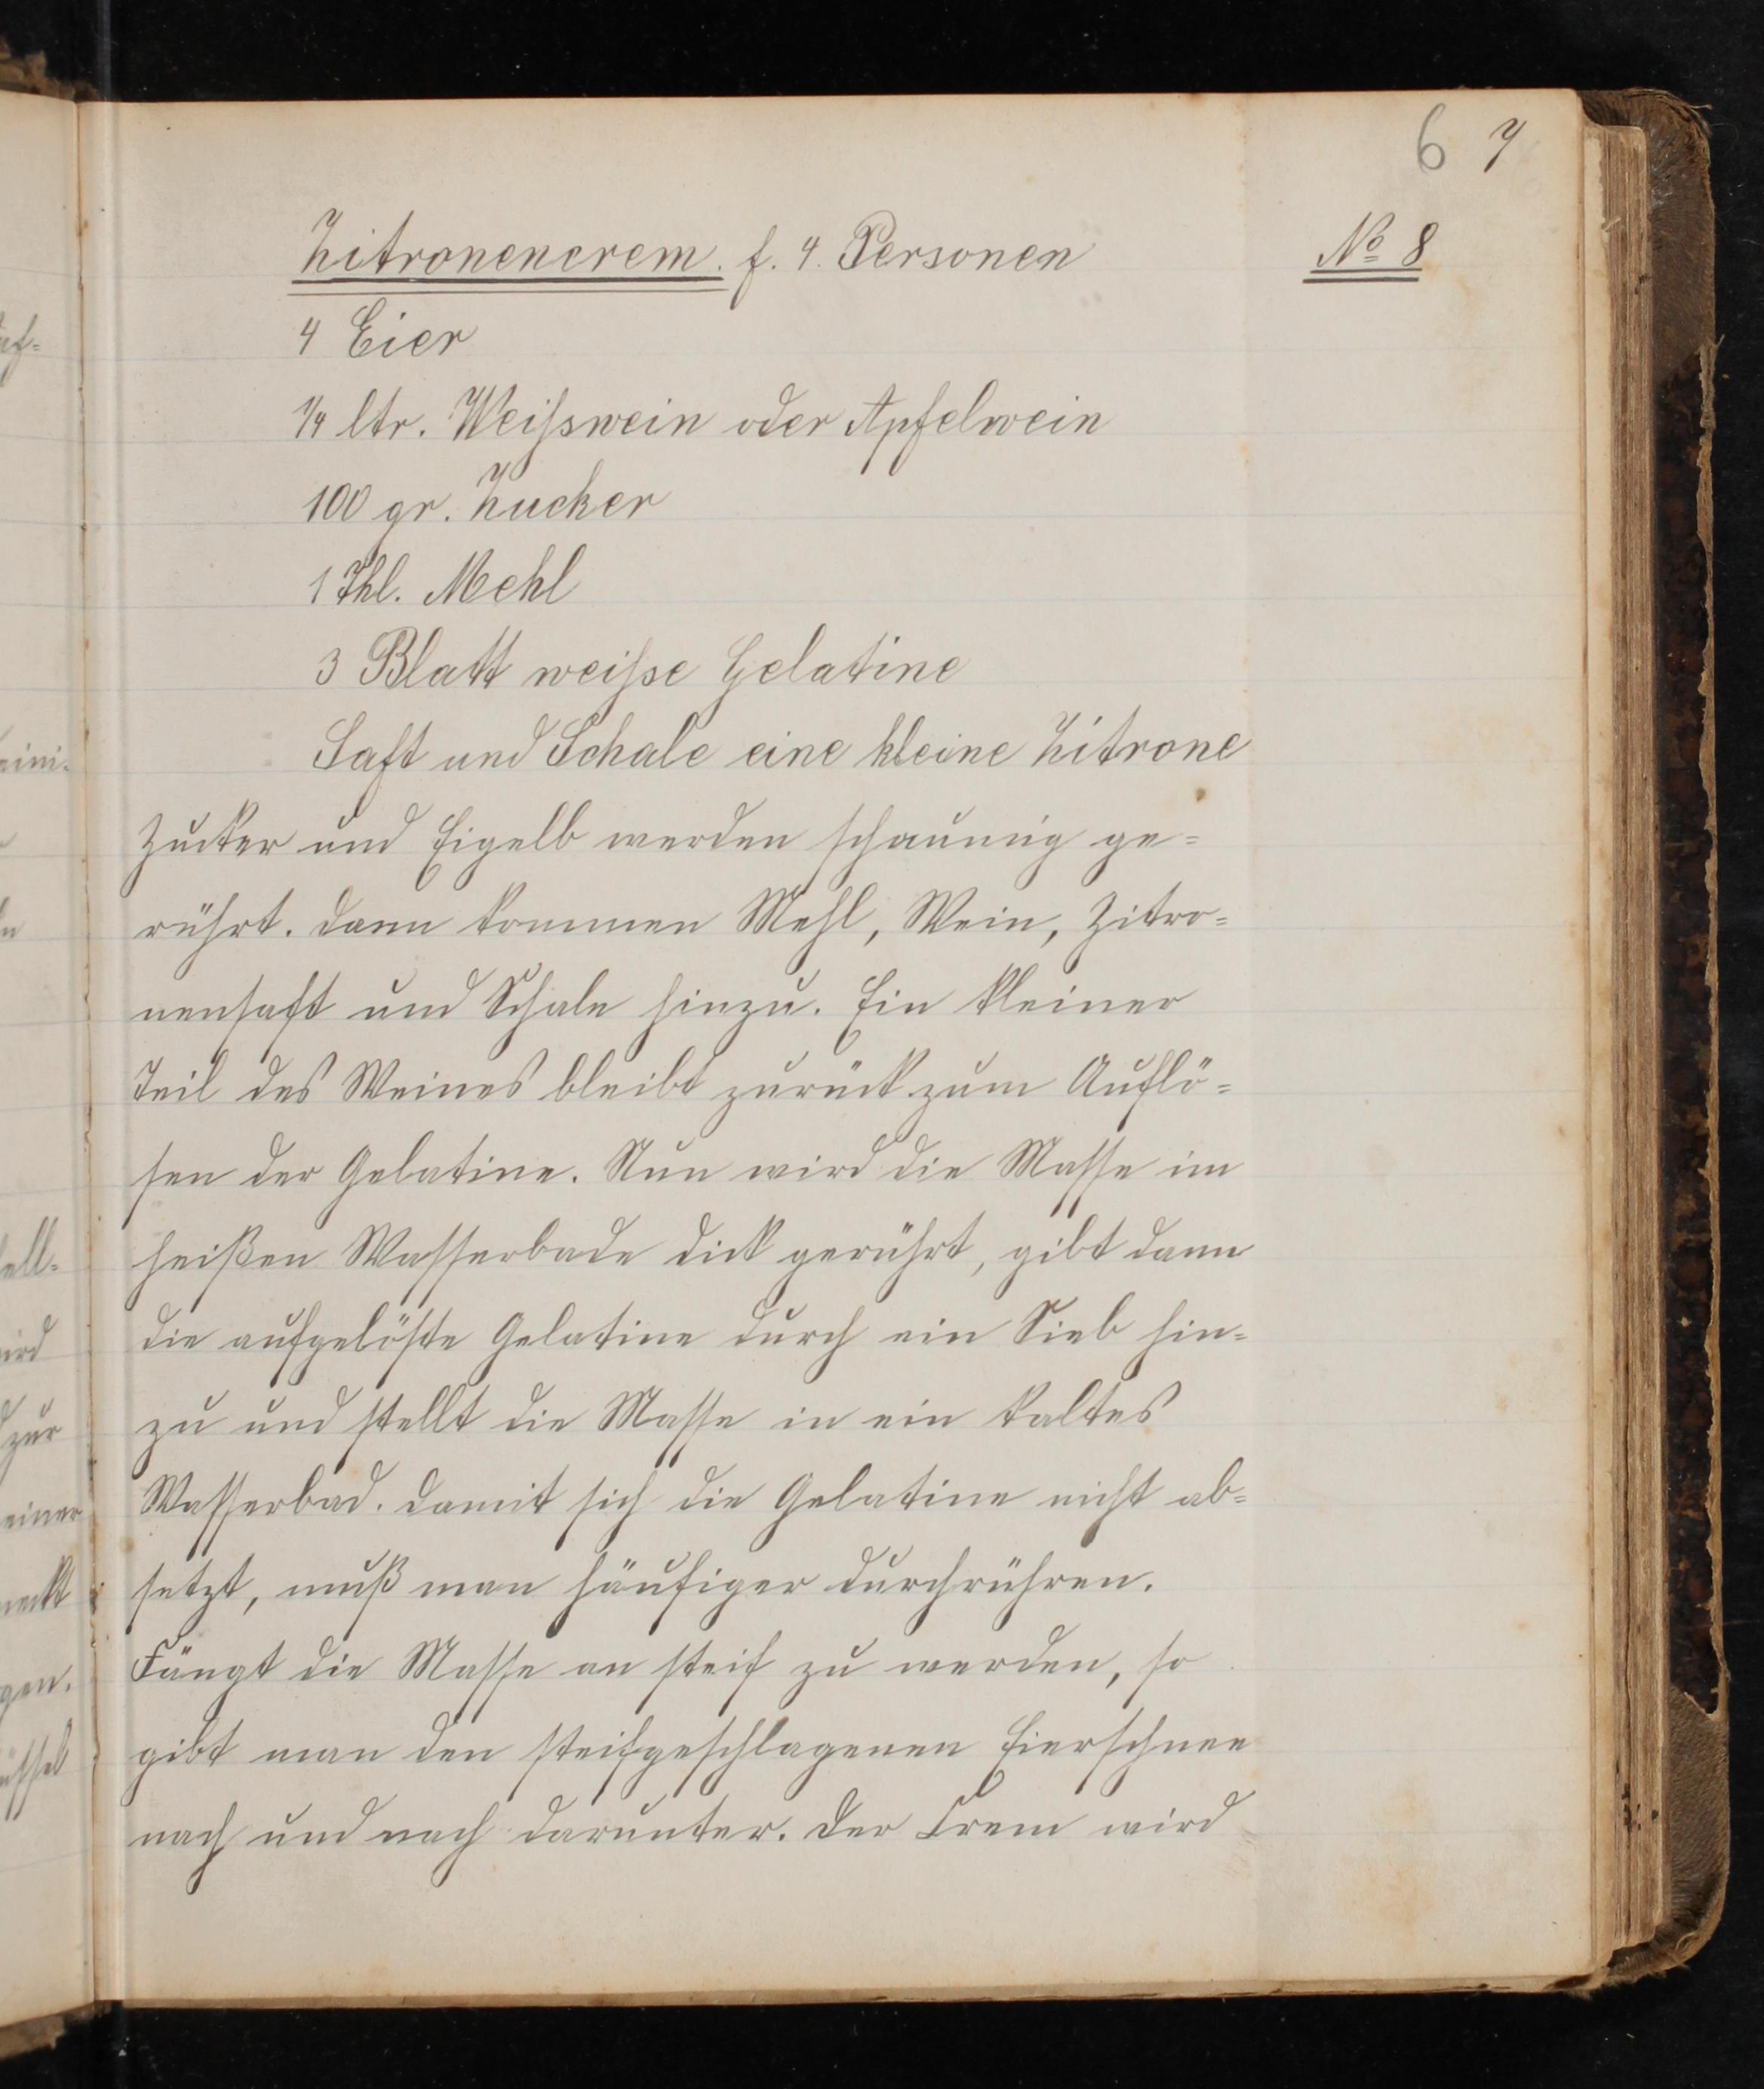 6 7
Zitronencrem. f. 4. Personen No 8
4 Eier
1/4 ltr. Weißwein oder Apfelwein
100 gr. Zucker
1 Thl. Mehl
3 Blatt weiße Gelatine
Saft und Schale eine kleine Zitrone
Zucker und Eigelb werden schaumig ge=
rührt. Dann kommen Mehl, Wein, Zitro=
nensaft und Schale hinzu. Ein kleiner
Teil des Weines bleibt zurück zum Auflö=
sen der Gelatine. Nun wird die Masse im
heißen Wasserbade dick gerührt, gibt dann
die aufgelöste Gelatine durch ein Sieb hin=
zu und stellt die Masse in ein kaltes
Wasserbad. Damit sich die Gelatine nicht ab=
setzt, muß man häufiger durchrühren.
Fängt die Masse an steif zu werden, so
gibt man den steifgeschlagenen Eierschnee
nach und nach darunter. Der Crem wird